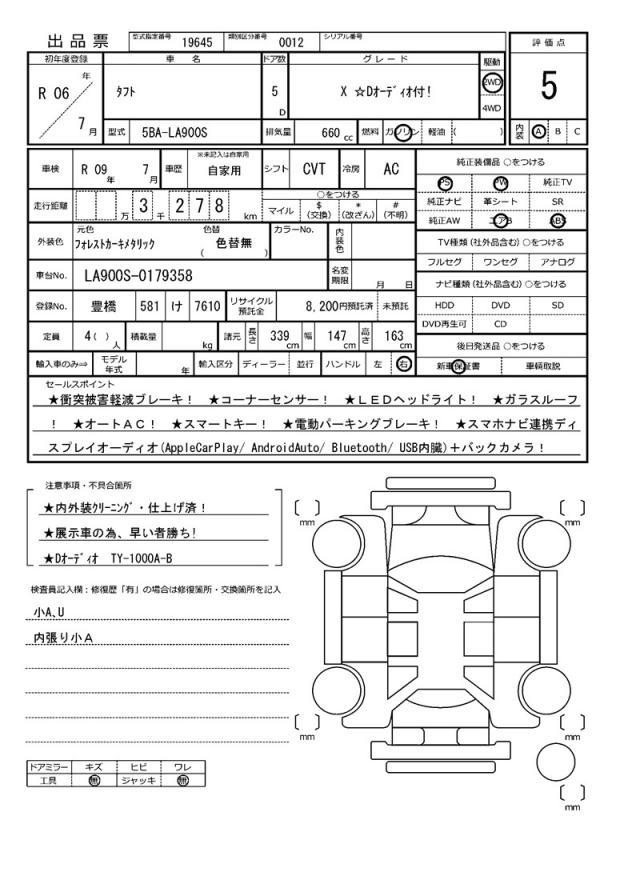 出品票 型式指定番号 19645 類別区分番号 0012 シリアル番号
評価点
初年度登録 車名 ドア数 グレード 駆動
R 06 年 7 月 タフト 5 D X ☆Dオーディオ付! 2WD 4WD
5
型式 5BA-LA900S 排気量 660 cc 燃料 ガソリン 軽油 ( )
内装 A B C
車検 R 09 年 7 月 車歴 ※未記入は自家用 自家用 シフト CVT 冷房 AC
走行距離 万 3 千 2 7 8 km
○をつける
マイル $(交換) *(改ざん) #(不明)
外装色 元色 フォレストカーキメタリック 色替 ( 色替無 ) カラーNo. 内装色
車台No. LA900S-0179358 名変期限 月 日
登録No. 豊橋 581 け 7610 リサイクル預託金 8,200円預託済 未預託
定員 4( ) 人 積載量 kg 諸元 長さ 339 cm 幅 147 cm 高さ 163 cm
輸入車のみ⇒ モデル年式 年 輸入区分 ディーラー 並行 ハンドル 左 右
純正装備品 ○をつける
PS PW 純正TV
純正ナビ 革シート SR
純正AW エアB ABS
TV種類(社外品含む)○をつける
フルセグ ワンセグ アナログ
ナビ種類(社外品含む)○をつける
HDD DVD SD
DVD再生可 CD
後日発送品 ○をつける
新車保証書 車輌取説
セールスポイント
★衝突被害軽減ブレーキ! ★コーナーセンサー! ★LEDヘッドライト! ★ガラスルーフ
! ★オートAC! ★スマートキー! ★電動パーキングブレーキ! ★スマホナビ連携ディ
スプレイオーディオ(AppleCarPlay/ AndroidAuto/ Bluetooth/ USB内臓)+バックカメラ!
注意事項・不具合箇所
★内外装クリーニング・仕上げ済!
★展示車の為、早い者勝ち!
★Dオーディオ TY-1000A-B
検査員記入欄：修復歴「有」の場合は修復箇所・交換箇所を記入
小A,U
内張り小A
ドアミラー キズ ヒビ ワレ
工具 無 ジャッキ 無
[ ] mm
[ ] mm
[ ] mm
[ ] mm
[ ] mm